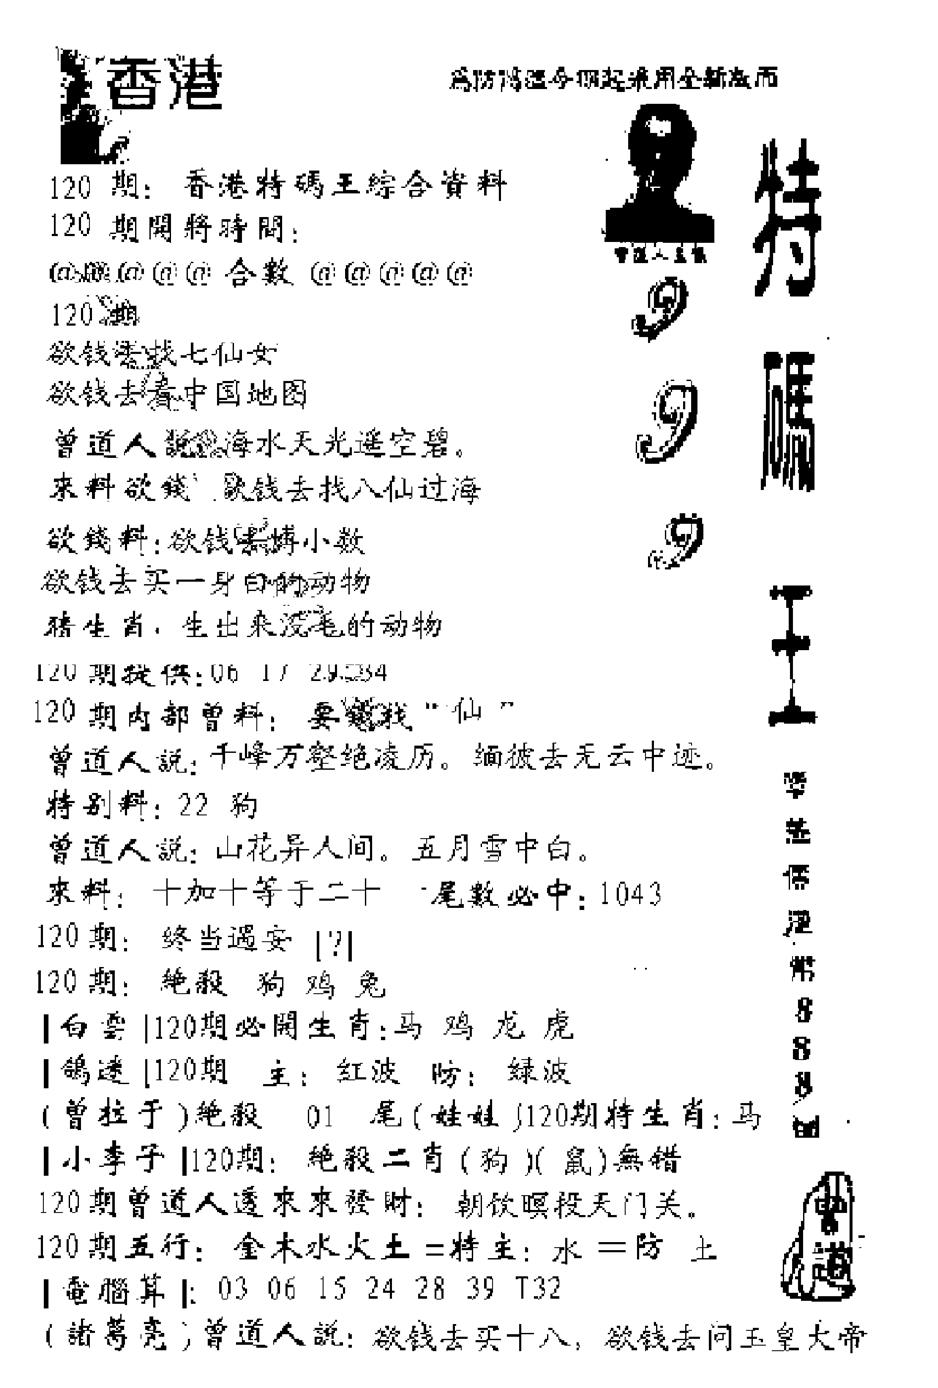 香港
120 期：香港特碼王綜合資料
120 期開將時間：
@ @ @ @ 合數 @ @ @ @ @
120 期
欲钱去找七仙女
欲钱去看中国地图
曾道人説 海水天光遥空碧。
來料欲錢 欲钱去找八仙过海
欲錢料：欲钱 搏小数
欲钱去买一身白的动物
猜生肖，生出来没毛的动物
120 期提供：06 17 29 34
120 期内部曾料： 要錢找 “ 仙 ”
曾道人説：千峰万壑绝凌历。缅彼去无云中迹。
特别料：22 狗
曾道人説：山花异人间。五月雪中白。
來料： 十加十等于二十 尾數必中：1043
120 期： 终当遇安 |?|
120 期： 绝殺 狗 鸡 兔
|白雲|120期必開生肖：马 鸡 龙 虎
|鴿迷|120期 主： 红波 防： 绿波
(曾拉于)绝殺 01 尾(娃娃)120期特生肖：马
|小李子|120期： 绝殺二肖(狗)(鼠)無错
120期曾道人透來來發財： 朝饮暝投天门关。
120期五行： 金木水火土=特主：水 =防 土
|電腦算|：03 06 15 24 28 39 T32
(諸葛亮)曾道人説：欲钱去买十八，欲钱去问玉皇大帝
999
特碼王
888
曾道